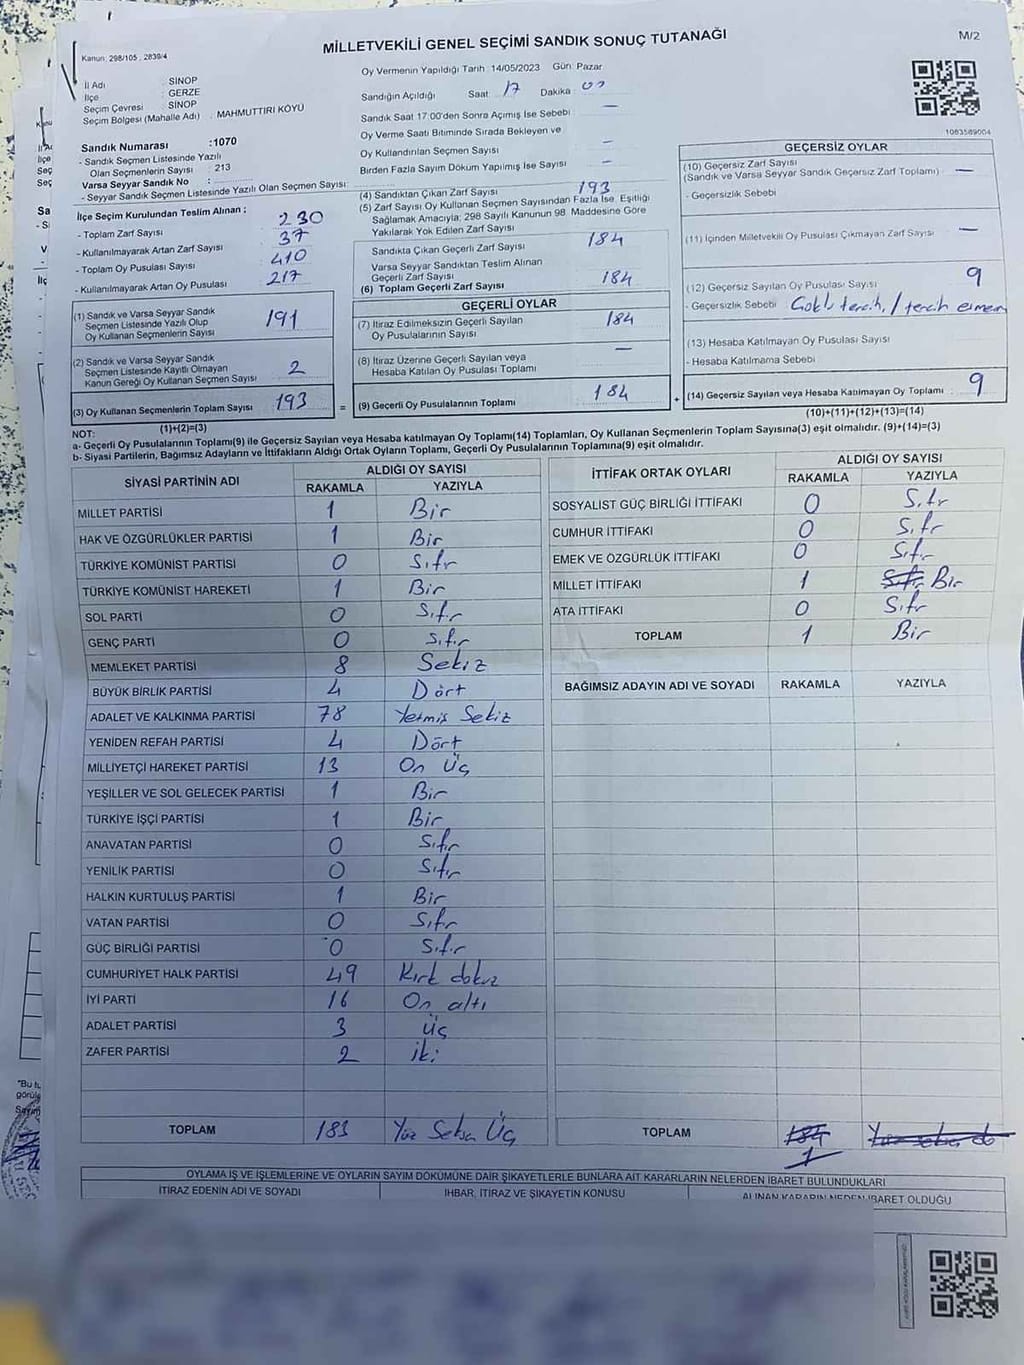 MİLLETVEKİLİ GENEL SEÇİMİ SANDIK SONUÇ TUTANAĞI
M/2
Kanun: 298/105 , 2839/4
İl Adı : SİNOP
İlçe : GERZE
Seçim Çevresi : SİNOP
Seçim Bölgesi (Mahalle Adı) : MAHMUTTIRI KÖYÜ
Oy Vermenin Yapıldığı Tarih :14/05/2023 Gün: Pazar
Sandığın Açıldığı Saat : 17 Dakika :
Sandık Saat 17:00'den Sonra Açımış İse Sebebi : —
Oy Verme Saati Bitiminde Sırada Bekleyen ve
Oy Kullandırılan Seçmen Sayısı : —
Birden Fazla Sayım Döküm Yapılmış İse Sayısı : —
1083589004
Sandık Numarası :1070
- Sandık Seçmen Listesinde Yazılı
Olan Seçmenlerin Sayısı : 213
Varsa Seyyar Sandık No :
- Seyyar Sandık Seçmen Listesinde Yazılı Olan Seçmen Sayısı:
İlçe Seçim Kurulundan Teslim Alınan :
- Toplam Zarf Sayısı : 230
- Kullanılmayarak Artan Zarf Sayısı : 37
- Toplam Oy Pusulası Sayısı : 410
- Kullanılmayarak Artan Oy Pusulası : 217
(1) Sandık ve Varsa Seyyar Sandık
Seçmen Listesinde Yazılı Olup
Oy Kullanan Seçmenlerin Sayısı : 191
(2) Sandık ve Varsa Seyyar Sandık
Seçmen Listesinde Kayıtlı Olmayan
Kanun Gereği Oy Kullanan Seçmen Sayısı : 2
(3) Oy Kullanan Seçmenlerin Toplam Sayısı : 193
(1)+(2)=(3)
(4) Sandıktan Çıkan Zarf Sayısı : 193
(5) Zarf Sayısı Oy Kullanan Seçmen Sayısından Fazla İse, Eşitliği
Sağlamak Amacıyla; 298 Sayılı Kanunun 98. Maddesine Göre
Yakılarak Yok Edilen Zarf Sayısı :
Sandıkta Çıkan Geçerli Zarf Sayısı : 184
Varsa Seyyar Sandıktan Teslim Alınan
Geçerli Zarf Sayısı :
(6) Toplam Geçerli Zarf Sayısı : 184
GEÇERLİ OYLAR
(7) İtiraz Edilmeksizin Geçerli Sayılan
Oy Pusulalarının Sayısı : 184
(8) İtiraz Üzerine Geçerli Sayılan veya
Hesaba Katılan Oy Pusulası Toplamı : —
= (9) Geçerli Oy Pusulalarının Toplamı : 184
GEÇERSİZ OYLAR
(10) Geçersiz Zarf Sayısı
(Sandık ve Varsa Seyyar Sandık Geçersiz Zarf Toplamı) : —
- Geçersizlik Sebebi :
(11) İçinden Milletvekili Oy Pusulası Çıkmayan Zarf Sayısı : —
(12) Geçersiz Sayılan Oy Pusulası Sayısı : 9
- Geçersizlik Sebebi : Çoklu tercih, / tercih etmeme
(13) Hesaba Katılmayan Oy Pusulası Sayısı :
- Hesaba Katılmama Sebebi :
+ (14) Geçersiz Sayılan veya Hesaba Katılmayan Oy Toplamı : 9
(10)+(11)+(12)+(13)=(14)
NOT:
a- Geçerli Oy Pusulalarının Toplamı(9) ile Geçersiz Sayılan veya Hesaba katılmayan Oy Toplamı(14) Toplamları, Oy Kullanan Seçmenlerin Toplam Sayısına(3) eşit olmalıdır. (9)+(14)=(3)
b- Siyasi Partilerin, Bağımsız Adayların ve İttifakların Aldığı Ortak Oyların Toplamı, Geçerli Oy Pusulalarının Toplamına(9) eşit olmalıdır.
SİYASİ PARTİNİN ADI ALDIĞI OY SAYISI
RAKAMLA YAZIYLA
MİLLET PARTİSİ 1 Bir
HAK VE ÖZGÜRLÜKLER PARTİSİ 1 Bir
TÜRKİYE KOMÜNİST PARTİSİ 0 Sıfır
TÜRKİYE KOMÜNİST HAREKETİ 1 Bir
SOL PARTİ 0 Sıfır
GENÇ PARTİ 0 Sıfır
MEMLEKET PARTİSİ 8 Sekiz
BÜYÜK BİRLİK PARTİSİ 4 Dört
ADALET VE KALKINMA PARTİSİ 78 Yetmiş Sekiz
YENİDEN REFAH PARTİSİ 4 Dört
MİLLİYETÇİ HAREKET PARTİSİ 13 On Üç
YEŞİLLER VE SOL GELECEK PARTİSİ 1 Bir
TÜRKİYE İŞÇİ PARTİSİ 1 Bir
ANAVATAN PARTİSİ 0 Sıfır
YENİLİK PARTİSİ 0 Sıfır
HALKIN KURTULUŞ PARTİSİ 1 Bir
VATAN PARTİSİ 0 Sıfır
GÜÇ BİRLİĞİ PARTİSİ 0 Sıfır
CUMHURİYET HALK PARTİSİ 49 Kırk dokuz
İYİ PARTİ 16 On altı
ADALET PARTİSİ 3 Üç
ZAFER PARTİSİ 2 iki
TOPLAM 183 Yüz Seksen Üç
İTTİFAK ORTAK OYLARI ALDIĞI OY SAYISI
RAKAMLA YAZIYLA
SOSYALİST GÜÇ BİRLİĞİ İTTİFAKI 0 Sıfır
CUMHUR İTTİFAKI 0 Sıfır
EMEK VE ÖZGÜRLÜK İTTİFAKI 0 Sıfır
MİLLET İTTİFAKI 1 Sıfır Bir
ATA İTTİFAKI 0 Sıfır
TOPLAM 1 Bir
BAĞIMSIZ ADAYIN ADI VE SOYADI RAKAMLA YAZIYLA
TOPLAM 184
1
OYLAMA İŞ VE İŞLEMLERİNE VE OYLARIN SAYIM DÖKÜMÜNE DAİR ŞİKAYETLERLE BUNLARA AİT KARARLARIN NELERDEN İBARET BULUNDUKLARI
İTİRAZ EDENİN ADI VE SOYADI İHBAR, İTİRAZ VE ŞİKAYETİN KONUSU ALINAN KARARIN NEDEN İBARET OLDUĞU